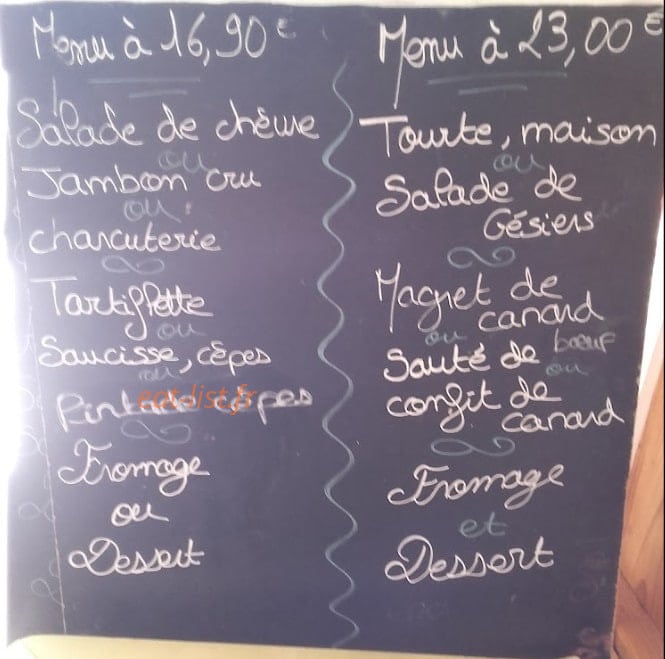 Menu à 16,90 €
Salade de chèvre
ou
Jambon cru
ou
charcuterie
Tartiflette
ou
Saucisse, cèpes
ou
Pintade cèpes
eat-list.fr
Fromage
ou
Dessert
Menu à 23,00 €
Tourte, maison
ou
Salade de
Gésiers
Magret de
canard
ou
Sauté de bœuf
ou
confit de
canard
Fromage
et
Dessert